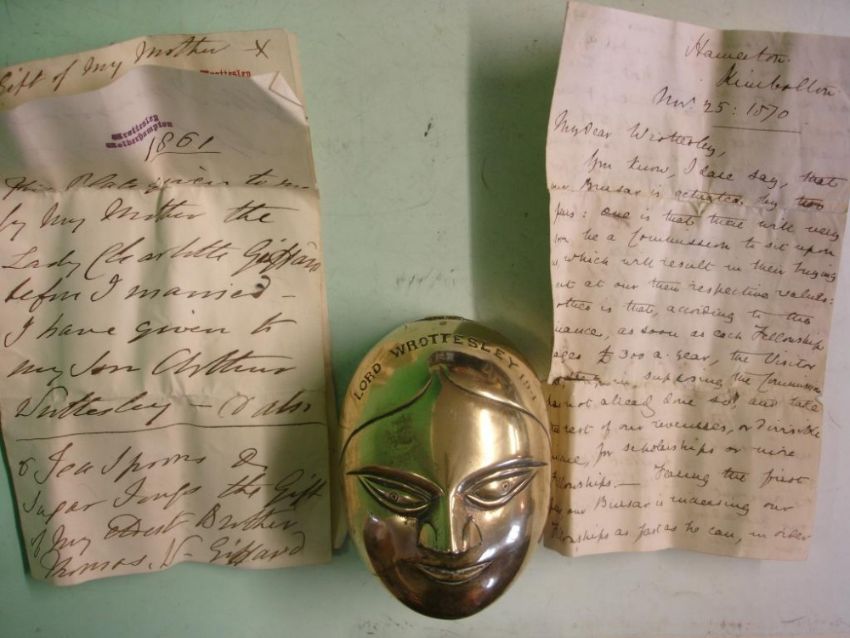 Gift of My Mother X
Wrottesley
Wrottesley
Wolverhampton
1861
This Plate given to me
by My Mother the
Lady Charlotte Giffard
before I married -
I have given to
my Son Arthur
Wrottesley -
6 Tea Spoons &
Sugar Tongs the Gift
of My Eldest Brother
Thomas. W- Giffard
LORD WROTTESLEY
Hamerton.
Kimbolton
Nov. 25: 1870
My dear Wrottesley,
You know, I dare say, that
our Bursar is actuated by two
fears: One is that there will very
soon be a Commission to sit upon
us which will result in their buying
out at our their respective values:
other is that, according to the
as soon as each Fellowship
£300 a-year, the Visitor
in supposing the Commission
not already done so, and take
rest of our revenues, or divisible
for scholarships or more
Fellowships - Fearing the first
our Bursar is increasing our
Fellowships as fast as he can, in order